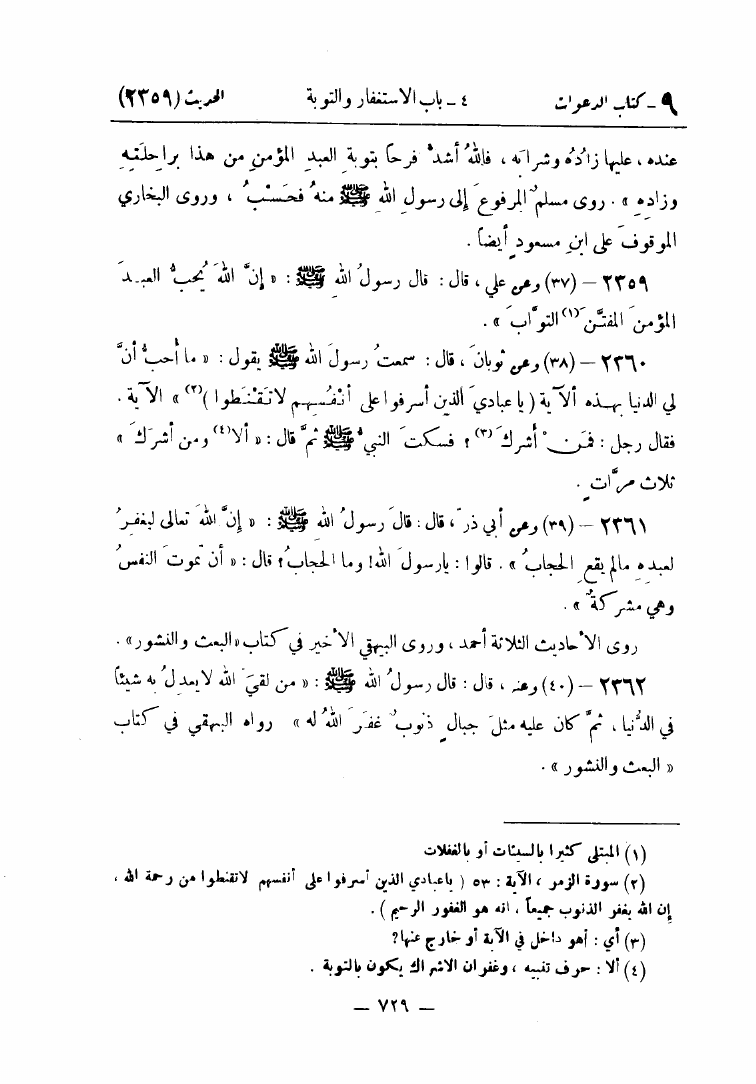 ٩ - كتاب الدعوات ٤ - باب الاستغفار والتوبة الحديث (٢٣٥٩)
عنده ، عليها زادُه وشرابُه ، فاللهُ أشدُّ فرحاً بتوبةِ العبدِ المؤمنِ من هذا براحلَتِهِ
وزادِهِ » . روى مسلمٌ المرفوعَ إلى رسولِ اللهِ ﷺ منهُ فحَسْبُ ، وروى البخاري
الموقوفَ على ابنِ مسعودٍ أيضاً .
٢٣٥٩ - (٣٧) وعن علي ، قال : قال رسولُ اللهِ ﷺ : « إنَّ اللهَ يُحبُّ العبدَ
المؤمنَ المفتَّنَ(١) التوَّابَ » .
٢٣٦٠ - (٣٨) وعن ثوبانَ ، قال : سمعتُ رسولَ اللهِ ﷺ يقول : « ما أحبُّ أنَّ
لي الدنيا بهذه الآية ( يا عباديَ الذين أسرفوا على أنْفُسِهم لا تَقْنَطوا )(٢) » الآية .
فقال رجل : فمَن أشركَ(٣) ؟ فسكتَ النبيُّ ﷺ ثمَّ قال : « ألا(٤) ومن أشركَ »
ثلاث مرَّاتٍ .
٢٣٦١ - (٣٩) وعن أبي ذر ، قال : قالَ رسولُ اللهِ ﷺ : « إنَّ اللهَ تعالى ليغفِرُ
لعبدِهِ ما لم يقعِ الحجابُ » . قالوا : يا رسولَ الله! وما الحجابُ ؟ قال : « أن تموتَ النفسُ
وهي مشركةٌ » .
روى الأحاديث الثلاثة أحمد ، وروى البيهقي الأخير في كتاب «البعث والنشور» .
٢٣٦٢ - (٤٠) وعنه ، قال : قال رسولُ الله ﷺ : « من لقيَ اللهَ لا يعدلُ به شيئاً
في الدُّنيا ، ثمَّ كان عليه مثلَ جبالٍ ذنوبٌ غفَرَ اللهُ له » رواه البيهقي في كتاب
« البعث والنشور » .
(١) المبتلى كثيرا بالسيئات أو بالغفلات
(٢) سورة الزمر ، الآية : ٥٣ ( يا عبادي الذين أسرفوا على أنفسهم لا تقنطوا من رحمة الله ،
إن الله يغفر الذنوب جميعاً ، انه هو الغفور الرحيم ) .
(٣) أي : أهو داخل في الآية أو خارج عنها؟
(٤) ألا : حرف تنبيه ، وغفران الاشراك يكون بالتوبة .
— ٧٢٩ —